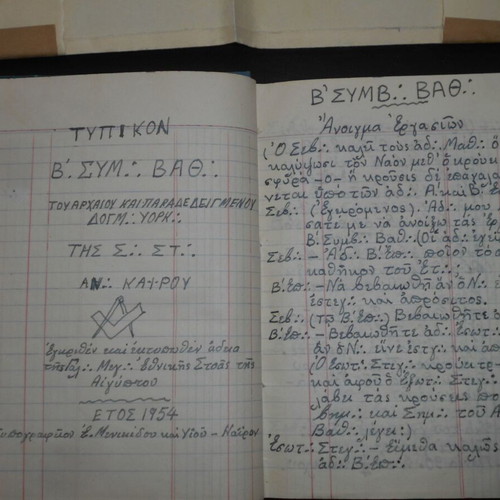 ΤΥΠΙΚΟΝ
Β΄. ΣΥΜ.·. ΒΑΘ.·.
ΤΟΥ ΑΡΧΑΙΟΥ ΚΑΙ ΠΑΡΑΔΕΔΕΙΓΜΕΝΟΥ
ΔΟΓΜ.·. ΥΟΡΚ.·.
ΤΗΣ Σ.·. ΣΤ.·.
ΑΝ.·. ΚΑΙΡΟΥ
Ἐγκριθὲν καὶ ἐκτυπωθὲν ἀδείᾳ
Μεγ.·. Ἐθνικῆς Στοᾶς τῆς
Αἰγύπτου
ΕΤΟΣ 1954
Τυπογραφεῖον Ε. Μενικίδου καὶ Υἱοῦ - Κάϊρον
Β΄ ΣΥΜΒ.·. ΒΑΘ.·.
Ἄνοιγμα Ἐργασιῶν
(Ὁ Σεβ.·. καλῆ τοὺς ἀδ.·. Μαθ.·. ὁ
καλύψωσι τὸν Ναὸν μεθ' ὁ κρούει
σφύρα -ο- ἡ κροῦσις δὲ ἐπαναλα
νεται ὑπὸ τῶν ἀδ.·. Α΄. καὶ Β΄. Ἐ
Σεβ.·. (ἐγειρόμενος). Ἀδ.·. μου
σατε με νὰ ἀνοίξω τὰς ἐρ
Β. Συμβ.·. Βαθ.·. (Οἱ ἀδ.·. ἐγεί
Σεβ.·. - Ἀδ.·. Β΄. Ἐπ.·. ποῖον τὸ
καθῆκον τοῦ Ἑτ.·.;
Β΄. Ἐπ.·. - Νὰ βεβαιωθῆ ἂν ὁ Ν.·. ε
ἐστεγ.·. καὶ ἀπρόσιτος.
Σεβ.·. (τῷ Β΄. Ἐπ.·.) Βεβαιωθῆτε ἀ
Β΄. Ἐπ.·. - Βεβαιωθῆτε ἀδ.·. ἐσωτ.·.
ἂν ὁ Ν.·. εἶνε ἐστεγ.·. καὶ ἀπ
(Ὁ ἐσωτ.·. Στεγ.·. κρούει τρ-
καὶ ἀφοῦ ὁ ἐξωτ.·. Στεγ.·.
λάβει τὰς κρούσεις πο
βημ.·. καὶ Σημ.·. τοῦ Α
Βαθ.·. λέγει:)
Ἐσωτ.·. Στεγ.·. - εἴμεθα καλῶς
ἀδ.·. Β΄. Ἐπ.·.